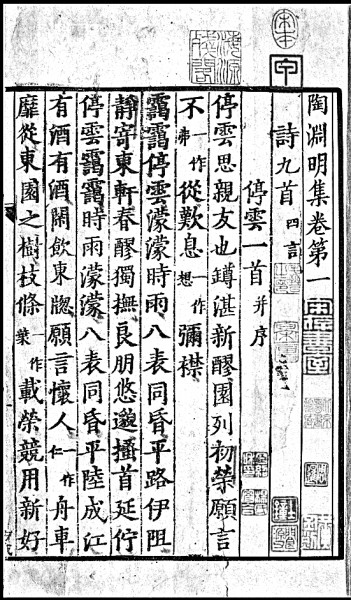 宋本
甲
陶淵明集卷第一
詩九首四言
停雲一首并序
停雲思親友也罇湛新醪園列初榮願言
不一作弗從歎息一作想彌襟
靄靄停雲濛濛時雨八表同昏平路伊阻
靜寄東軒春醪獨撫良朋悠邈搔首延佇
停雲靄靄時雨濛濛八表同昏平陸成江
有酒有酒閒飲東牕願言懷人一作仁舟車
靡從東園之樹枝條一作葉載榮競用新好